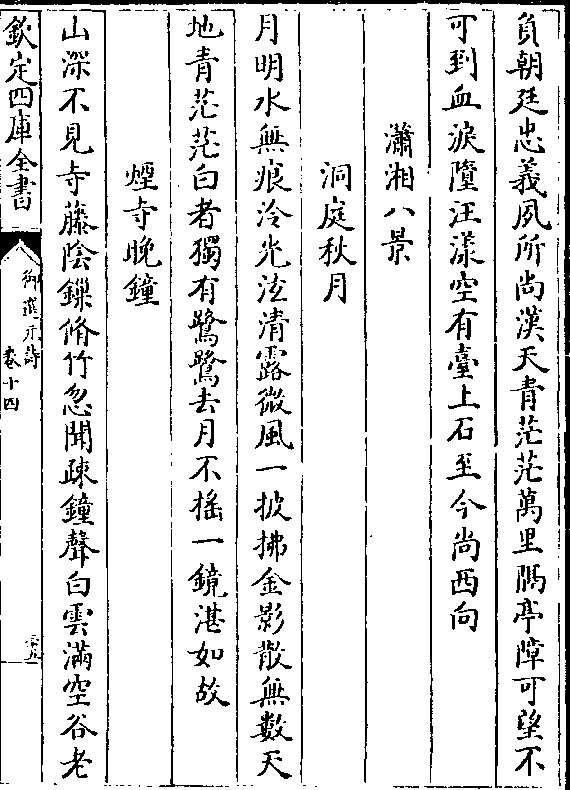 負朝廷忠義夙所尚漢天青茫茫萬里隅亭障可望不
可到血淚墮汪漾空有臺上石至今尚西向
瀟湘八景
洞庭秋月
月明水無痕冷光泫清露微風一披拂金影散無數天
地青茫茫白者獨有鷺鷺去月不搖一鏡湛如故
煙寺晚鐘
山深不見寺藤陰鏁脩竹忽聞疎鐘聲白雲滿空谷老
欽定四庫全書
御選元詩
卷十四
三十九